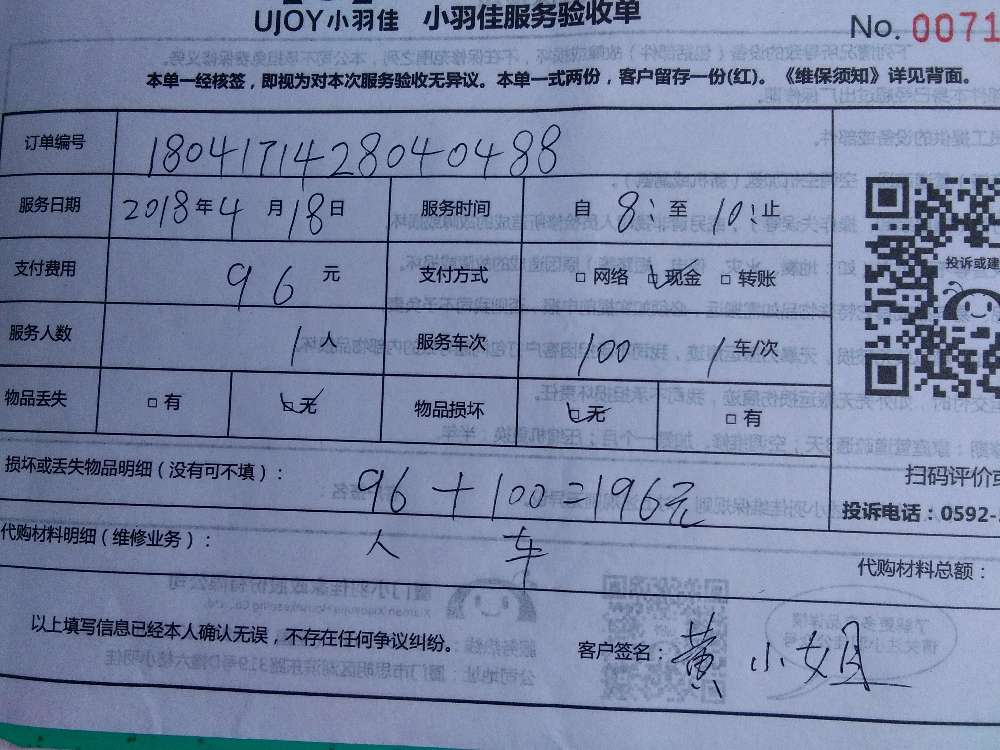 UJOY小羽佳 小羽佳服务验收单
No. 0071
本单一经核签，即视为对本次服务验收无异议。本单一式两份，客户留存一份(红)。《维保须知》详见背面。
订单编号 1804171428040488
服务日期 2018年4月18日 服务时间 自8:至10:止
支付费用 96元 支付方式 □网络 ☑现金 □转账
投诉或建
服务人数 1人 服务车次 100 1车/次
物品丢失 □有 ☑无 物品损坏 ☑无 □有
损坏或丢失物品明细（没有可不填）： 96+100=196元
扫码评价或
投诉电话：0592-
代购材料明细（维修业务）： 人 车
代购材料总额：
以上填写信息已经本人确认无误，不存在任何争议纠纷。 客户签名：黄小姐